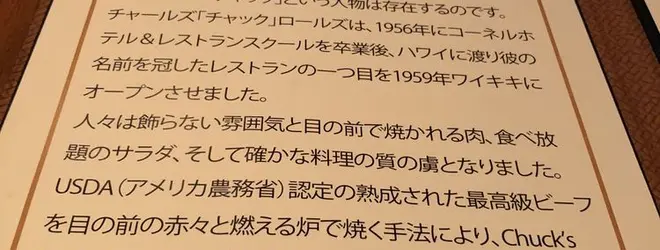 という人物は存在するのです。
チャールズ「チャック」ロールズは、1956年にコーネルホ
テル＆レストランスクールを卒業後、ハワイに渡り彼の
名前を冠したレストランの一つ目を1959年ワイキキに
オープンさせました。
人々は飾らない雰囲気と目の前で焼かれる肉、食べ放
題のサラダ、そして確かな料理の質の虜となりました。
USDA（アメリカ農務省）認定の熟成された最高級ビーフ
を目の前の赤々と燃える炉で焼く手法により、Chuck's